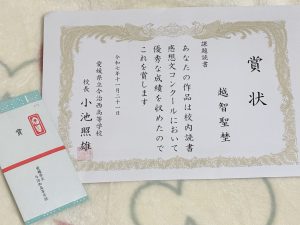 賞状
課題読書
越智聖埜
あなたの作品は校内読書
感想文コンクールにおいて
優秀な成績を収めたので
これを賞します
令和七年十一月二十一日
愛媛県立今治西高等学校
校長 小池照雄
賞